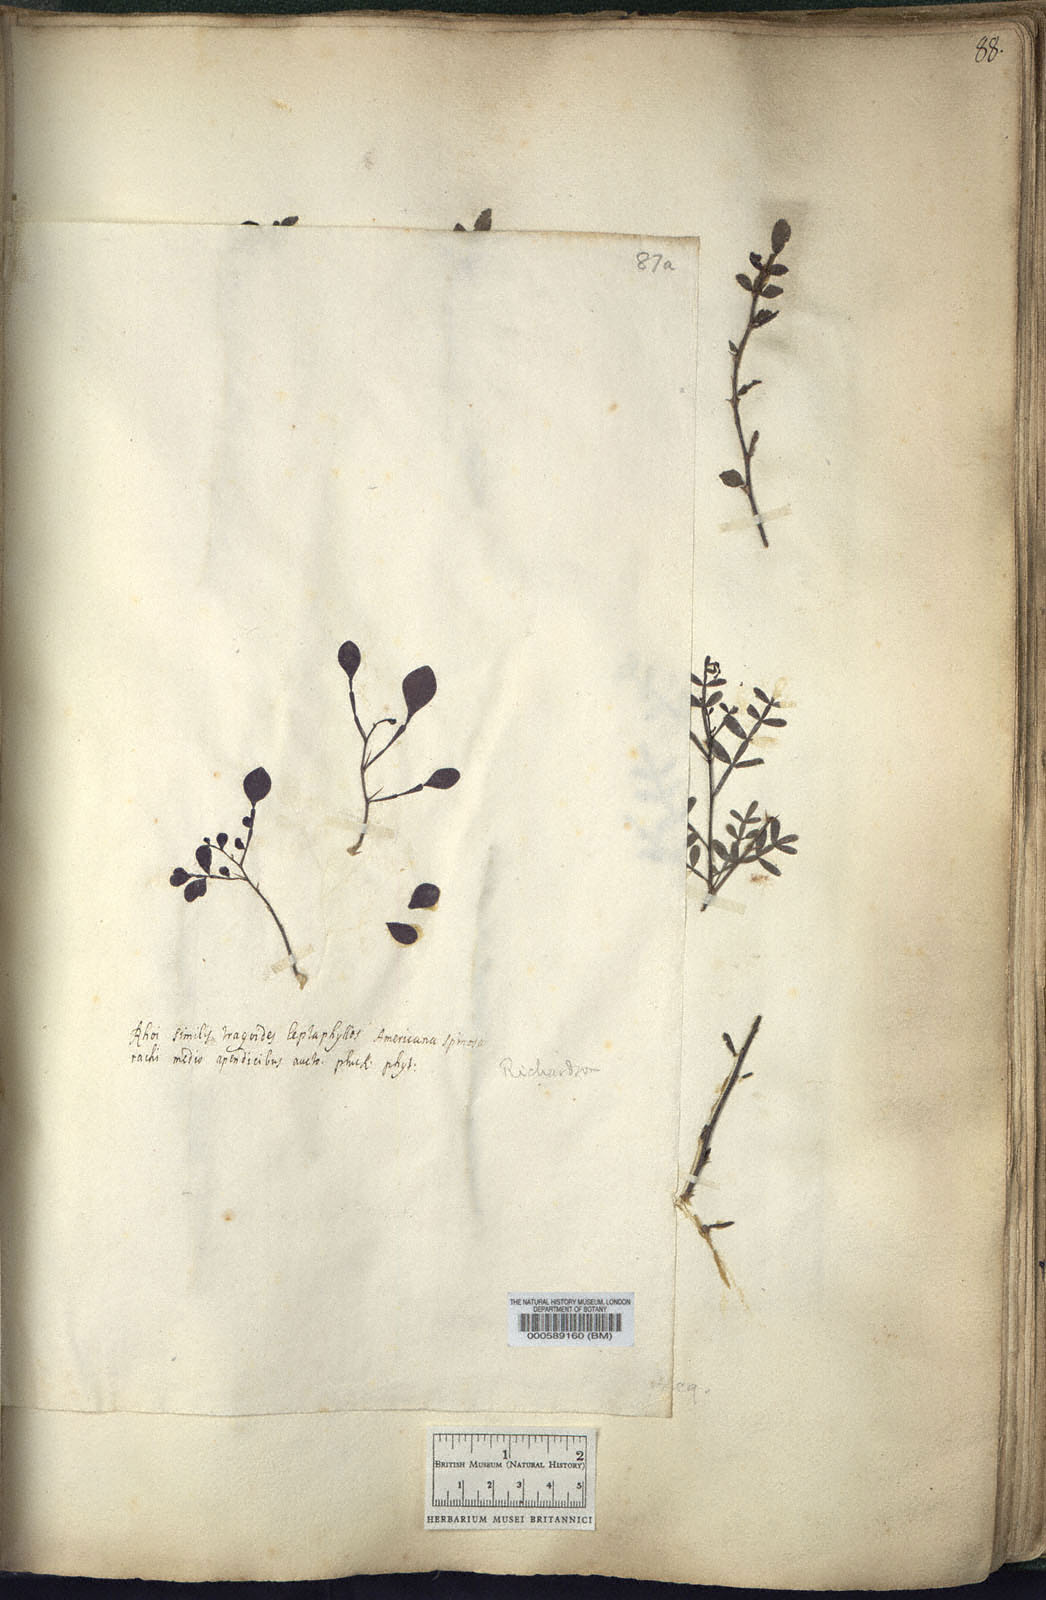 88.
87a
Rhoi similis tragoides leptaphyllos Americana spinosa
rachi medio apendicibus aucto. pluk. phyt:
Richardson
THE NATURAL HISTORY MUSEUM, LONDON
DEPARTMENT OF BOTANY
000589160 (BM)
1 2
BRITISH MUSEUM (NATURAL HISTORY)
1 2 3 4 5
HERBARIUM MUSEI BRITANNICI